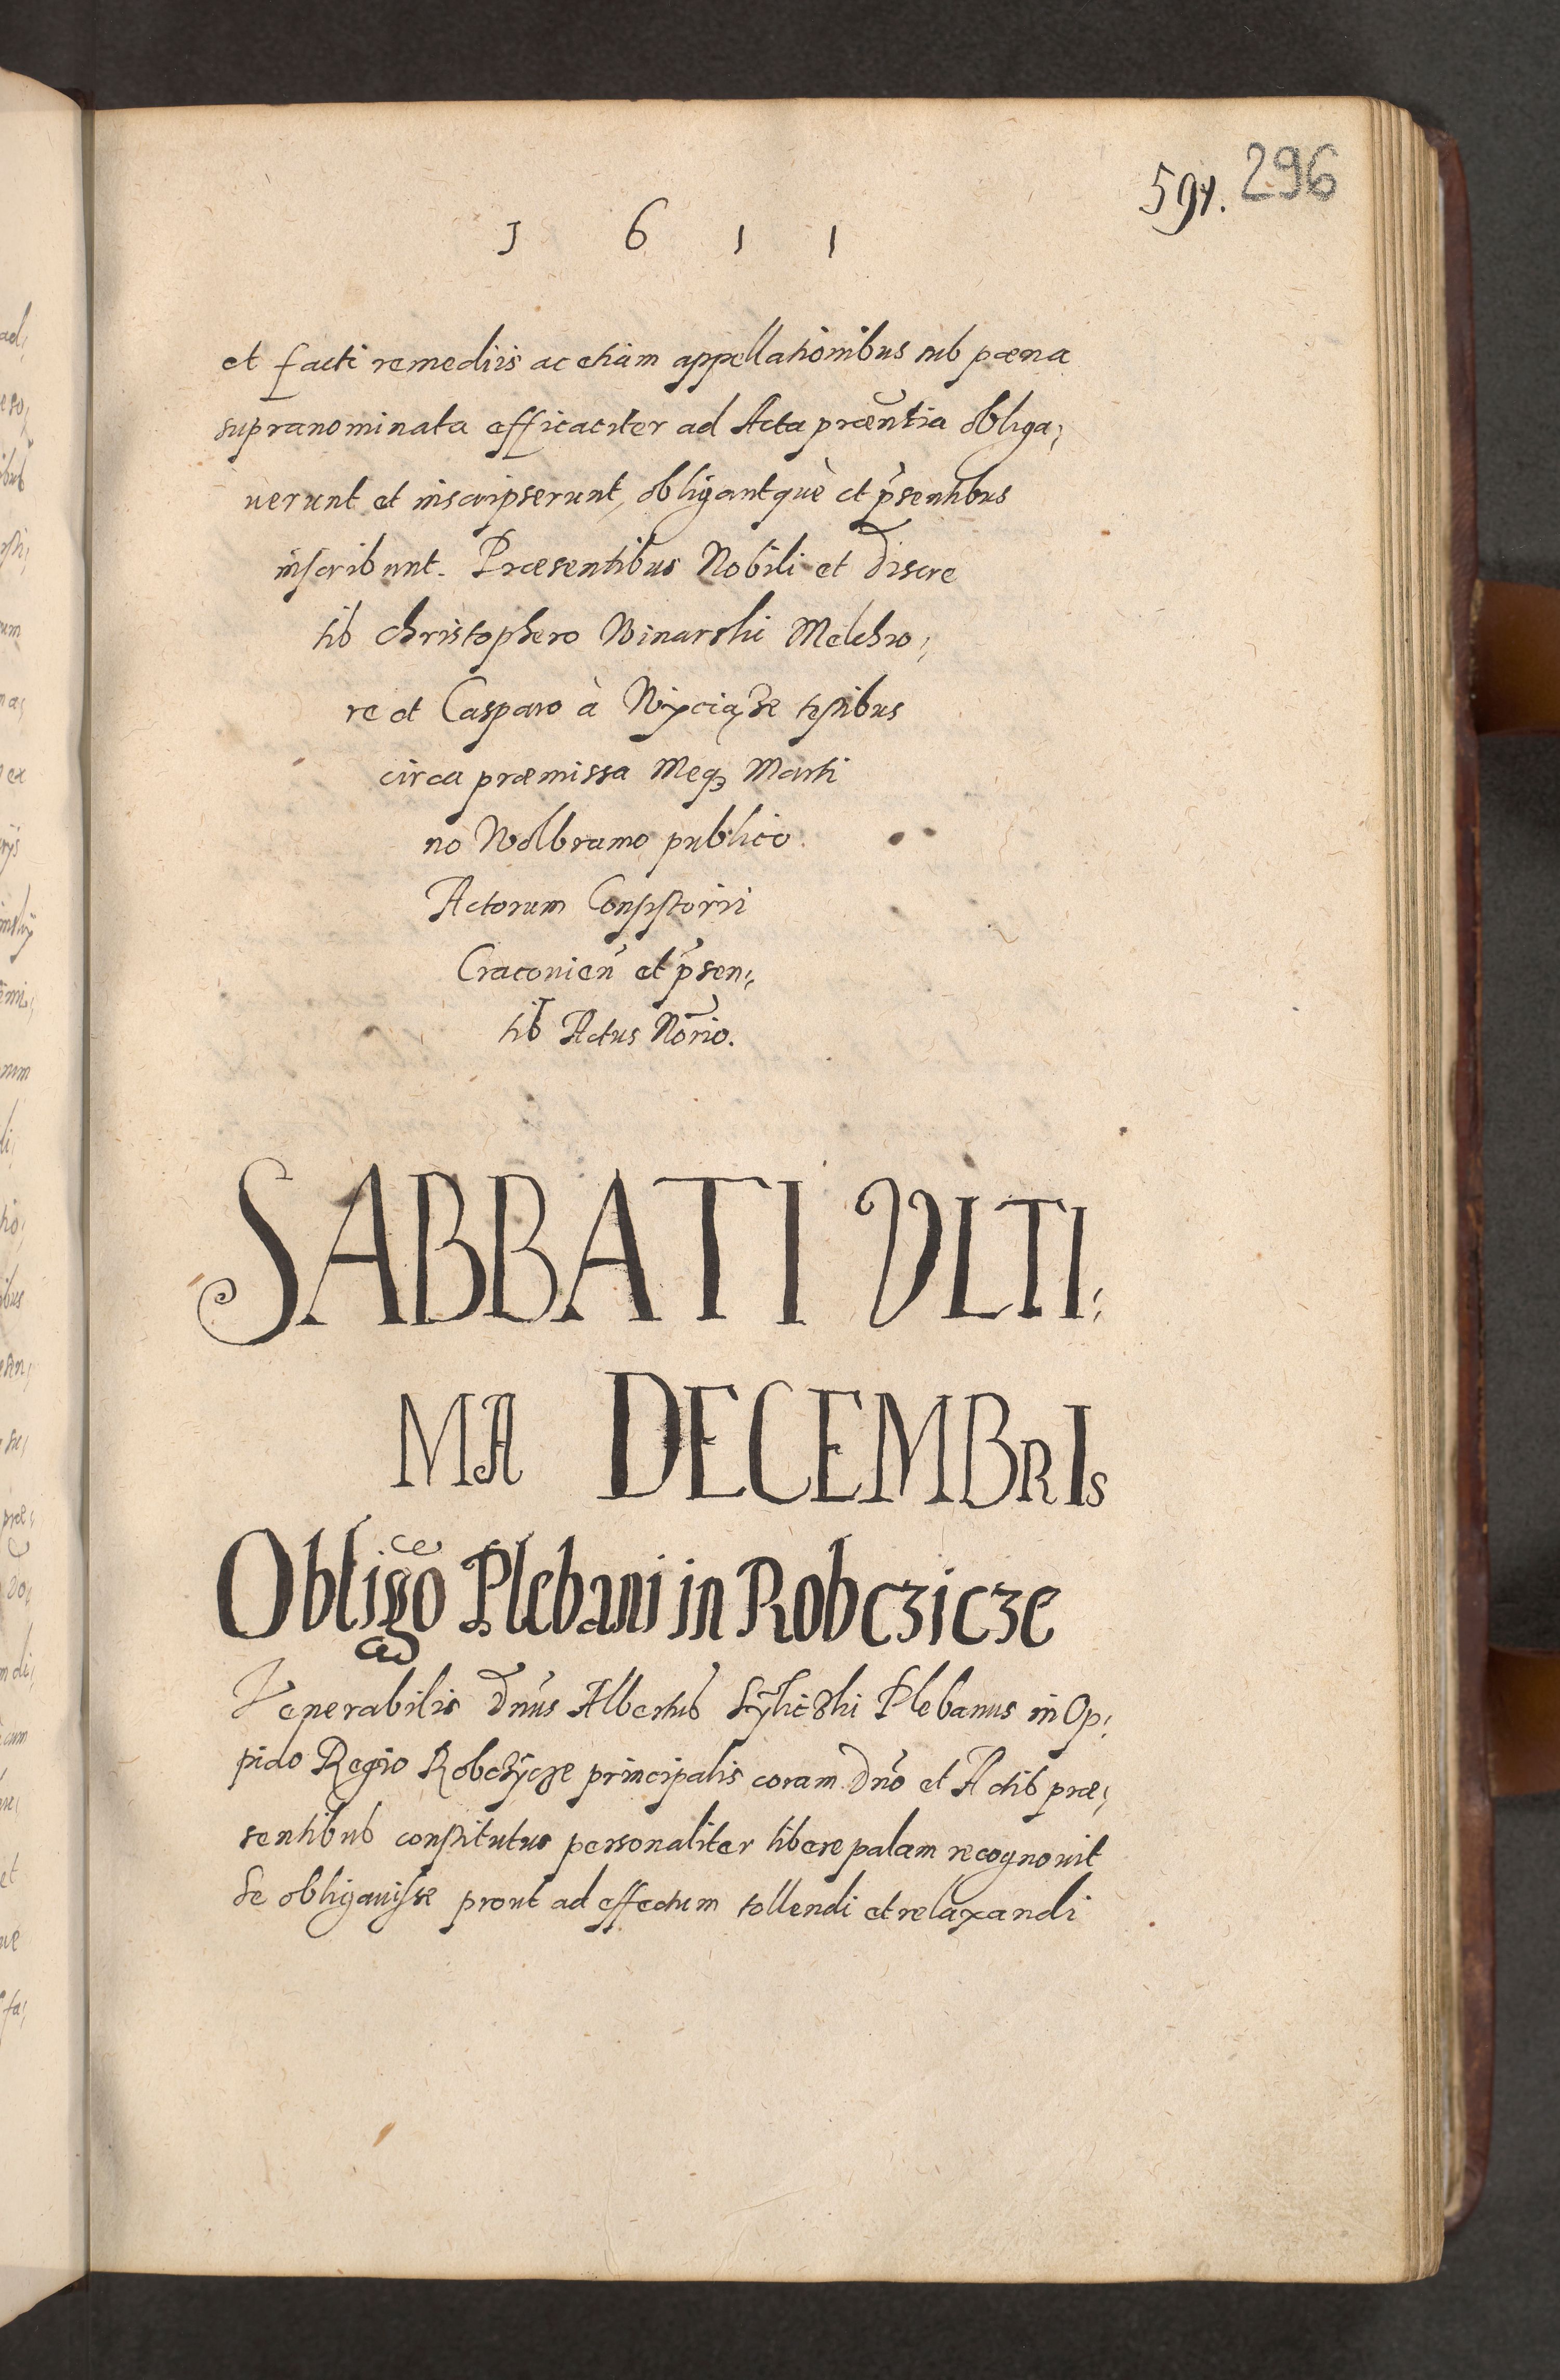 591. 296
1 6 1 1
et facti remediis ac etiam appellationibus sub pœna
supranominata efficaciter ad Acta præntia obliga,
uerunt et inscripserunt, obligantquè et p̃sentibus
inscribunt. Præsentibus Nobili et Discre
tis Christophero Winarski Melchio,
re et Casparo à Wyciąże testibus
circa præmissa Meq3 Marti
no Wolbramo publico
Actorum Consistorii
Cracouien̄ et p̃sen,
tis Actus Nōrio.
SABBATI VLTI,
MA DECEMBRIS
Obligō Plebani in Robcziсze
Venerabilis Dn̄us Albertus Plebanus in Op,
pido Regio Robczycze principalis coram Dn̄o et Actis præ,
sentibus constitutus personaliter libere palam recognouit
Se obligauisse prout ad effectum tollendi et relaxandi